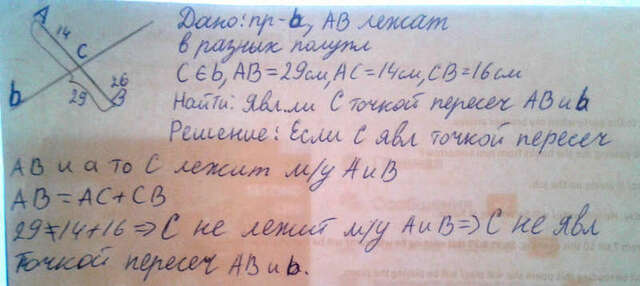 A
14
C
b
29
26
B
Дано: пр-b, AB лежат
в разных полупл
C∈b, AB=29см, AC=14см, CB=16см
Найти: Явл.ли C точкой пересеч AB и b
Решение: Если C явл точкой пересеч
AB и a то C лежит м/у A и B
AB=AC+CB
29≠14+16⇒C не лежит м/у A и B⇒C не явл
точкой пересеч AB и b.